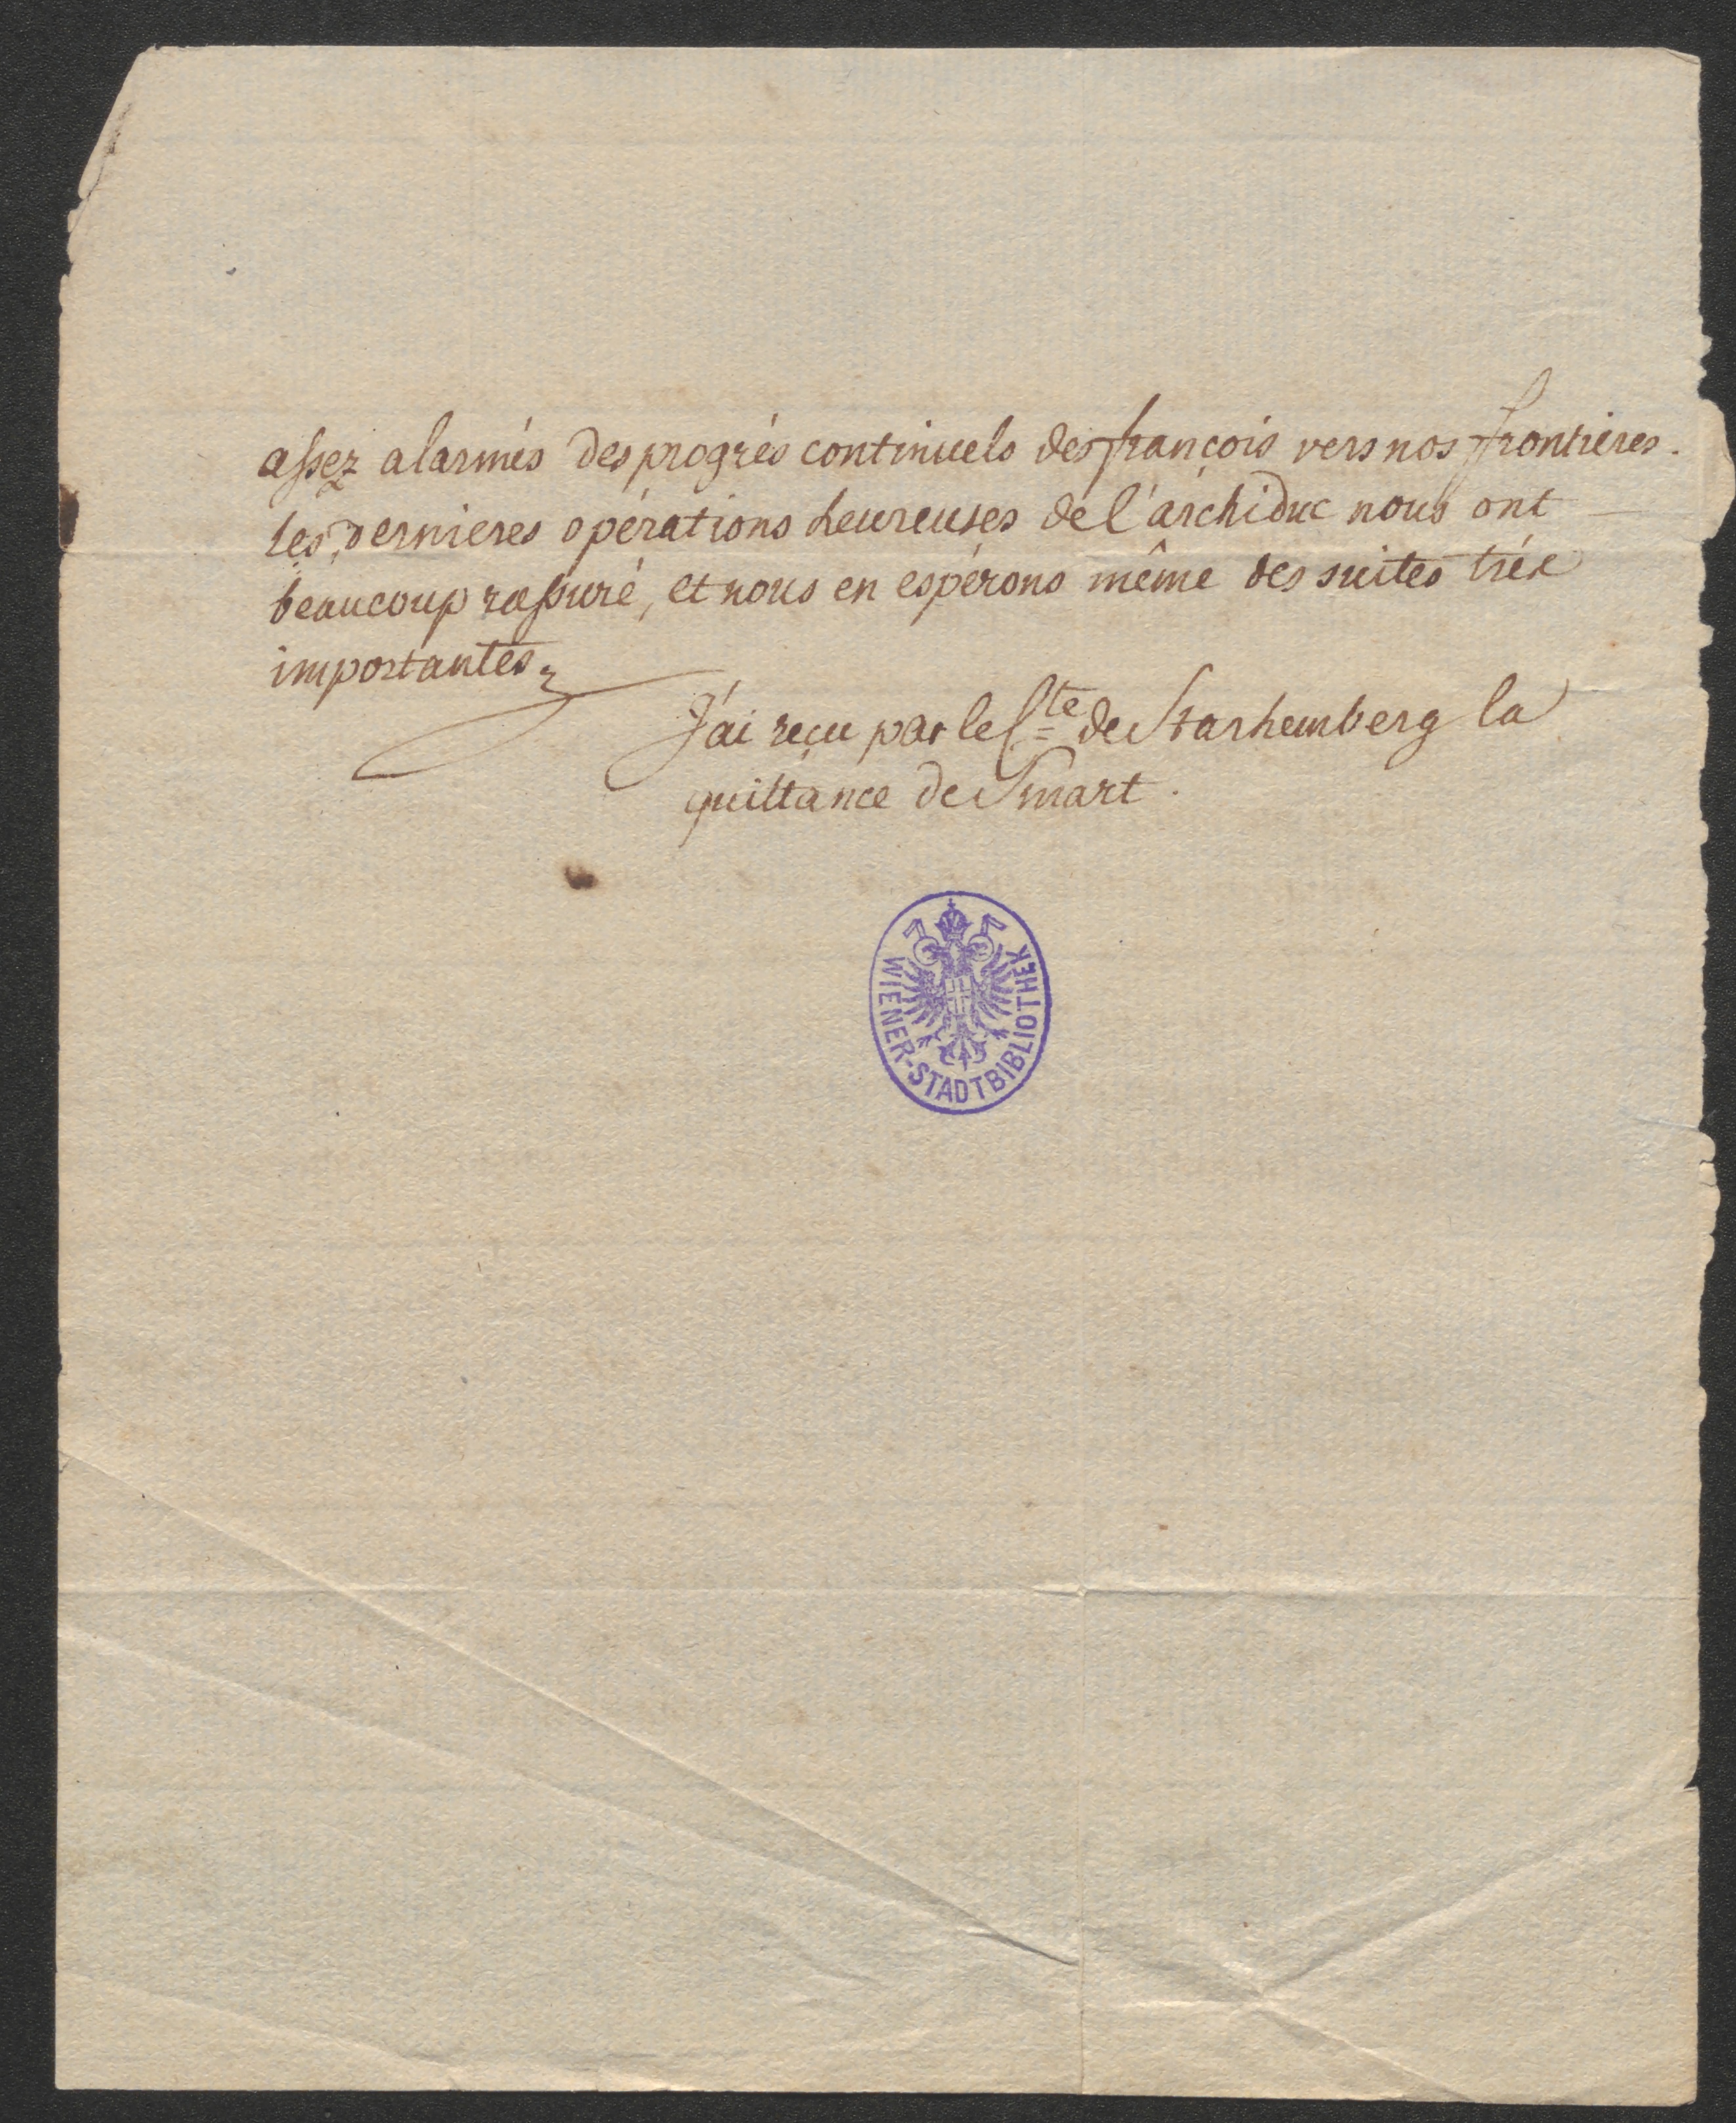 assez alarmés des progrés continuels des françois vers nos frontieres.
Les dernieres opérations heureuses de l'archiduc nous ont
beaucoup rassuré, et nous en espérons même des suites trés
importantes.
J'ai reçu par le Cte de Starhemberg la
quittance de Smart.
WIENER-STADTBIBLIOTHEK